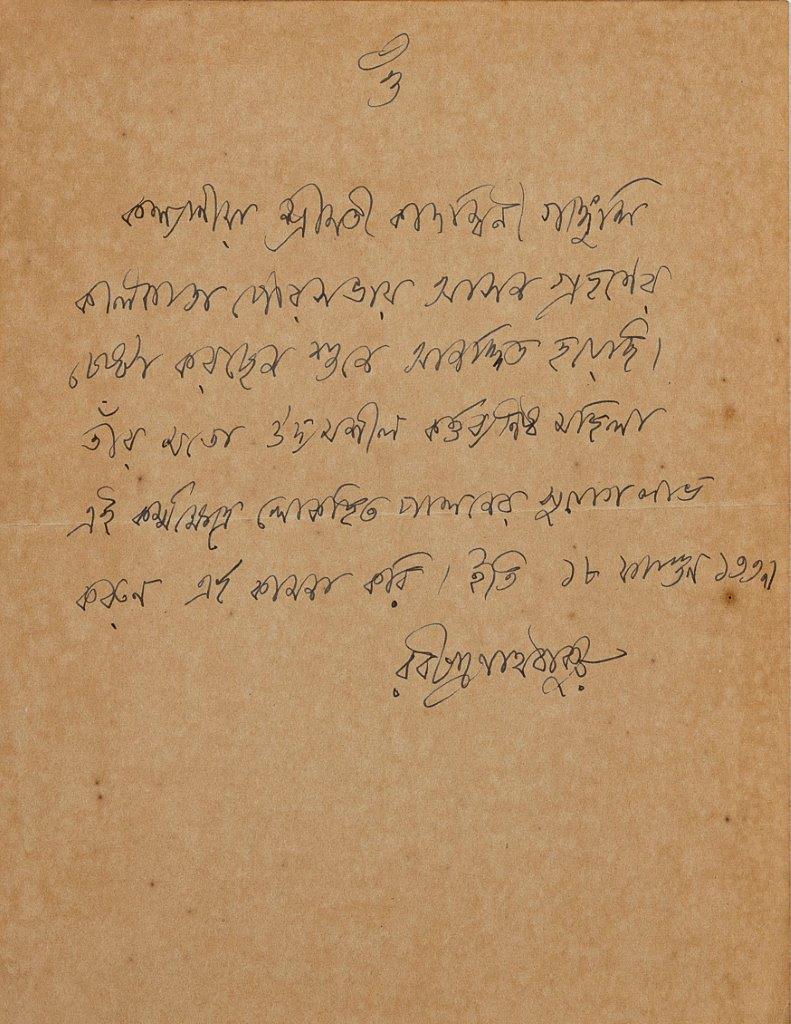 ওঁ
কল্যাণীয়া শ্রীমতী কাদম্বিনী গাঙ্গুলি
কলিকাতা পৌরসভায় আসন গ্রহণের
চেষ্টা করছেন শুনে আনন্দিত হয়েছি।
তাঁর মতো উদ্যমশীল কর্ত্তব্যনিষ্ঠ মহিলা
এই কর্ম্মক্ষেত্রে লোকহিত পালনের সুযোগ লাভ
করুন এই কামনা করি। ইতি ১৮ ফাল্গুন
রবীন্দ্রনাথ ঠাকুর